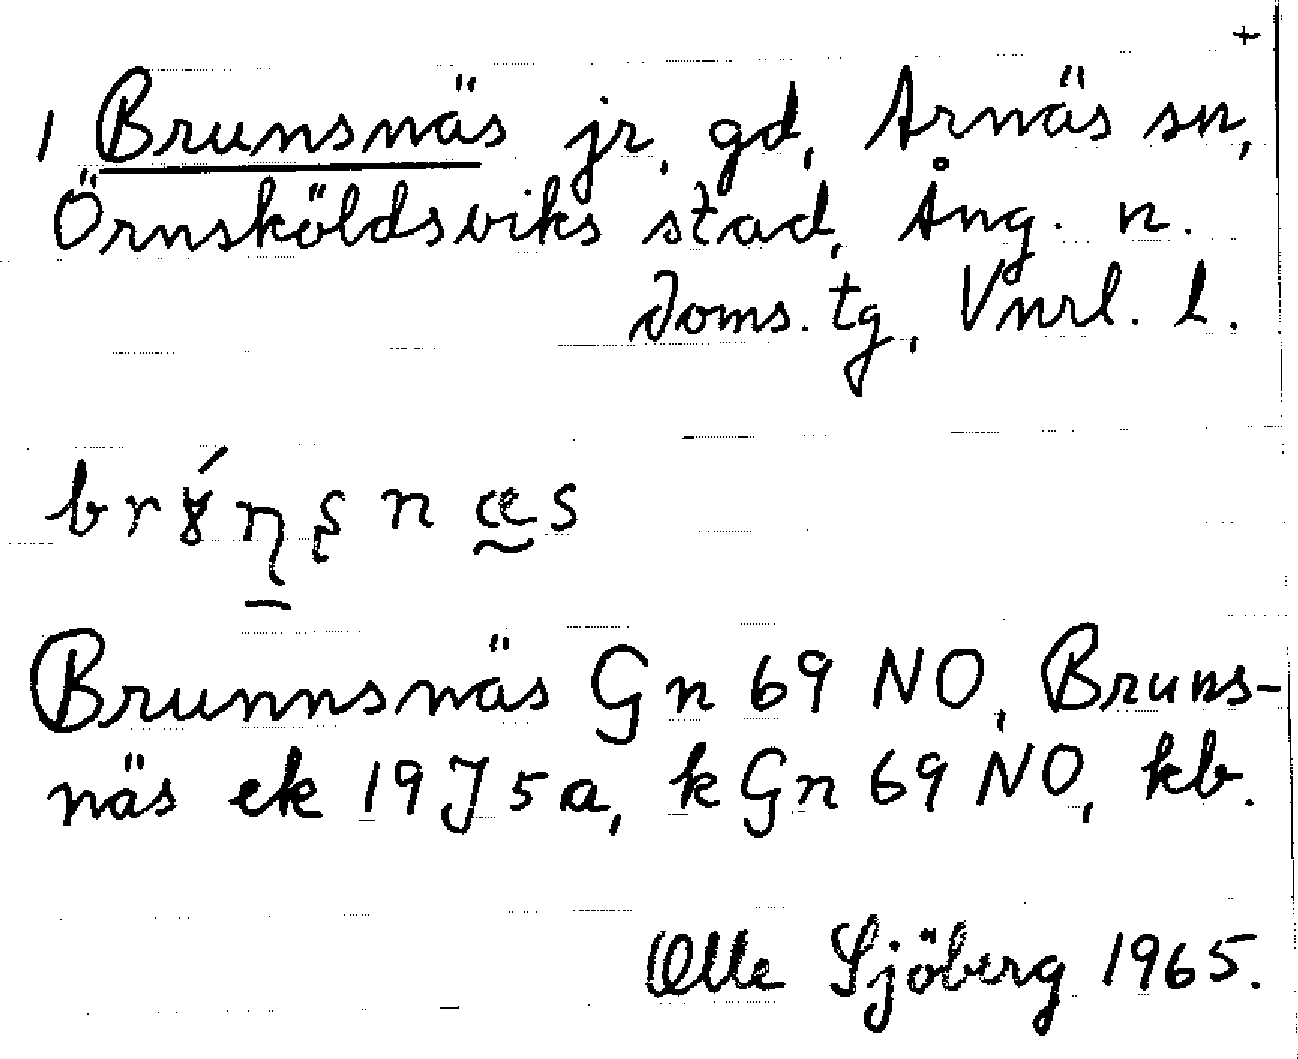 +
1 Brunsnäs jr. gd, Arnäs sn,
Örnsköldsviks stad, Ång. n.
doms. tg, Vnrl. l.
Brunnsnäs Gn 69 NO, Bruns-
näs ek 19J5a, k Gn 69 NO, kb.
Olle Sjöberg 1965.